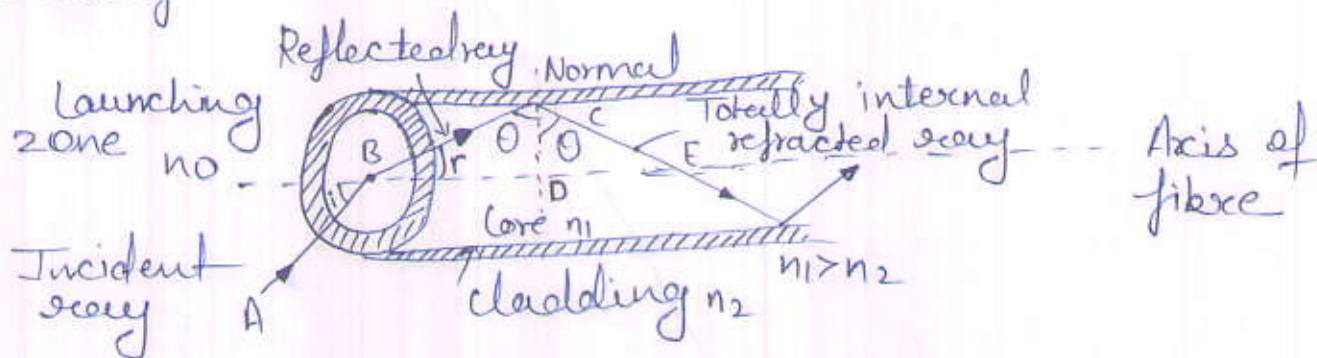 Reflected ray
Normal
Launching
zone
no
Totally internal
refracted ray
Axis of
fibre
B
r
θ
θ
C
E
i
D
Core n1
n1>n2
Incident
ray
A
cladding n2